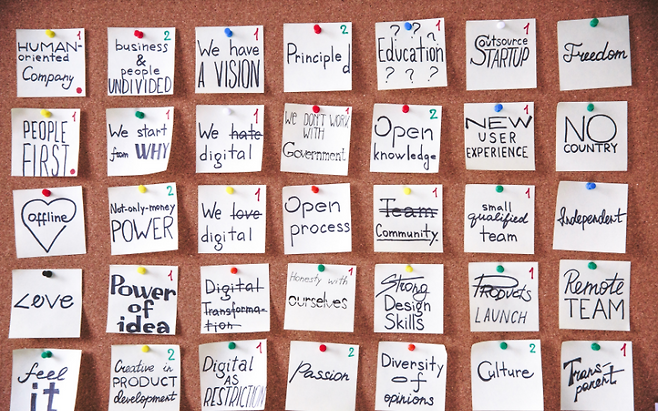 HUMAN-
oriented
Company
business
&
people
UNDIVIDED
2
We have
A VISION
1
Principled
2
? ? ?
Education
? ? ?
1
Outsource
STARTUP
1
Freedom
PEOPLE
FIRST
1
We start
from WHY
We hate
digital
1
WE DON'T WORK
WITH
Government
1
Open
knowledge
2
NEW
USER
EXPERIENCE
1
NO
COUNTRY
Offline
Not-only-money
POWER
2
We love
digital
1
Open
process
Team
Community
1
small
qualified
team
1
Independent
Love
Power
of
idea
1
Digital
Transforma-
tion
Honesty with
ourselves
1
Strong
Design
Skills
Products
LAUNCH
1
Remote
TEAM
feel
it
Creative in
PRODUCT
development
2
Digital
AS
RESTRICTION
1
Passion
2
Diversity
of
opinions
Culture
2
Trans-
parent
1